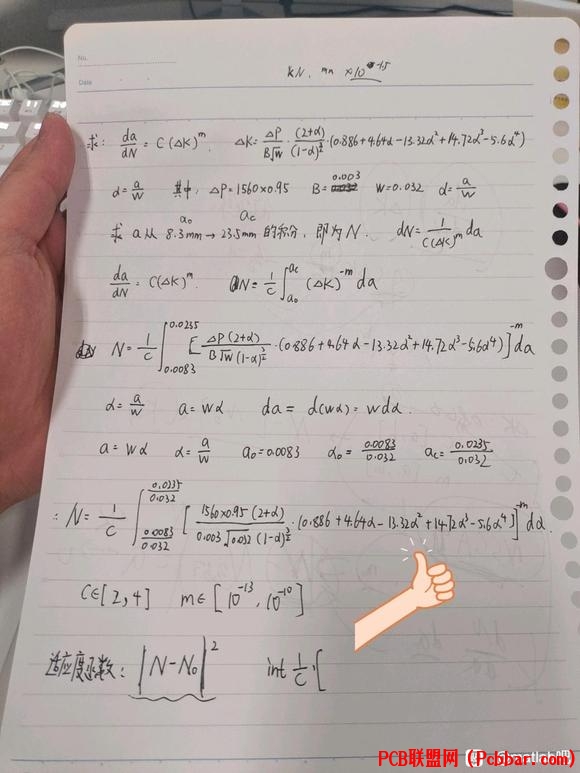 No.
Date
kN, mm ×10^-15
求: da/dN = C(ΔK)^m. ΔK = ΔP/(B√w) · (2+α)/(1-α)^(3/2) · (0.886+4.64α-13.32α²+14.72α³-5.6α⁴)
α = a/w 其中, ΔP=1560×0.95 B=0.003 W=0.032 α=a/w
a₀ ac
求 a从 8.3mm → 23.5mm 的积分, 即为N. dN = 1/(C(ΔK)^m) da
da/dN = C(ΔK)^m. N = 1/C ∫_{a₀}^{ac} (ΔK)^-m da
N = 1/C ∫_{0.0083}^{0.0235} [ΔP(2+α)/(B√w(1-α)^(3/2)) · (0.886+4.64α-13.32α²+14.72α³-5.6α⁴)]^-m da
α = a/w a = wα da = d(wα) = wdα.
a = wα α = a/w a₀=0.0083 α₀ = 0.0083/0.032 ac = 0.0235/0.032
∴ N = 1/C ∫_{0.0083/0.032}^{0.0235/0.032} [1560×0.95(2+α)/(0.003√0.032(1-α)^(3/2)) · (0.886+4.64α-13.32α²+14.72α³-5.6α⁴)]^-m dα.
C∈[2,4] m∈[10^-13, 10^-10]
适应度函数: |N-N₀|² int 1/C·[
PCB联盟网（Pcbbar.com）